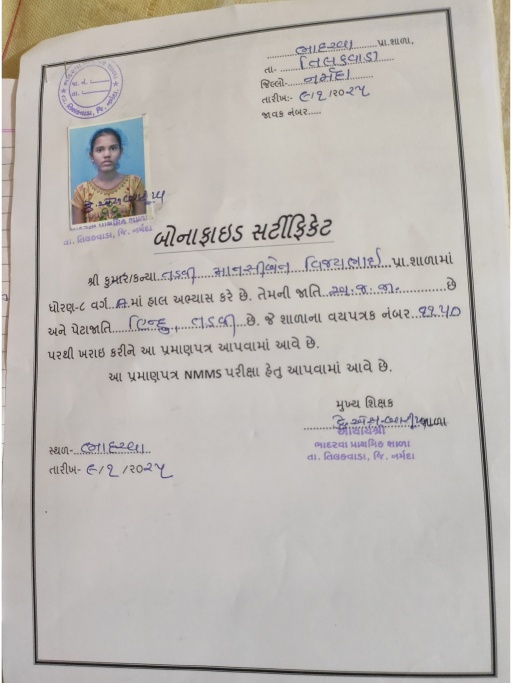 ભાદરવા પ્રા.શાળા,
તા- તિલકવાડા
જિલ્લો- નર્મદા
તારીખ:- ૯/૧/૨૦૨૫
જાવક નંબર.....
તા. તિલકવાડા, જિ. નર્મદા
બોનાફાઇડ સર્ટીફિકેટ
શ્રી કુમાર/કન્યા તડવી માનસીબેન વિજયભાઈ પ્રા.શાળામાં
ધોરણ-૮ વર્ગ A માં હાલ અભ્યાસ કરે છે. તેમની જાતિ અનુ.જ.જા. છે
અને પેટાજાતિ હિન્દુ, તડવી છે. જે શાળાના વયપત્રક નંબર ૧૧૫૦
પરથી ખરાઇ કરીને આ પ્રમાણપત્ર આપવામાં આવે છે.
આ પ્રમાણપત્ર NMMS પરીક્ષા હેતુ આપવામાં આવે છે.
મુખ્ય શિક્ષક
શાળા
આચાર્યશ્રી
ભાદરવા પ્રાથમિક શાળા
તા. તિલકવાડા, જિ. નર્મદા
સ્થળ- ભાદરવા
તારીખ- ૯/૧/૨૦૨૫